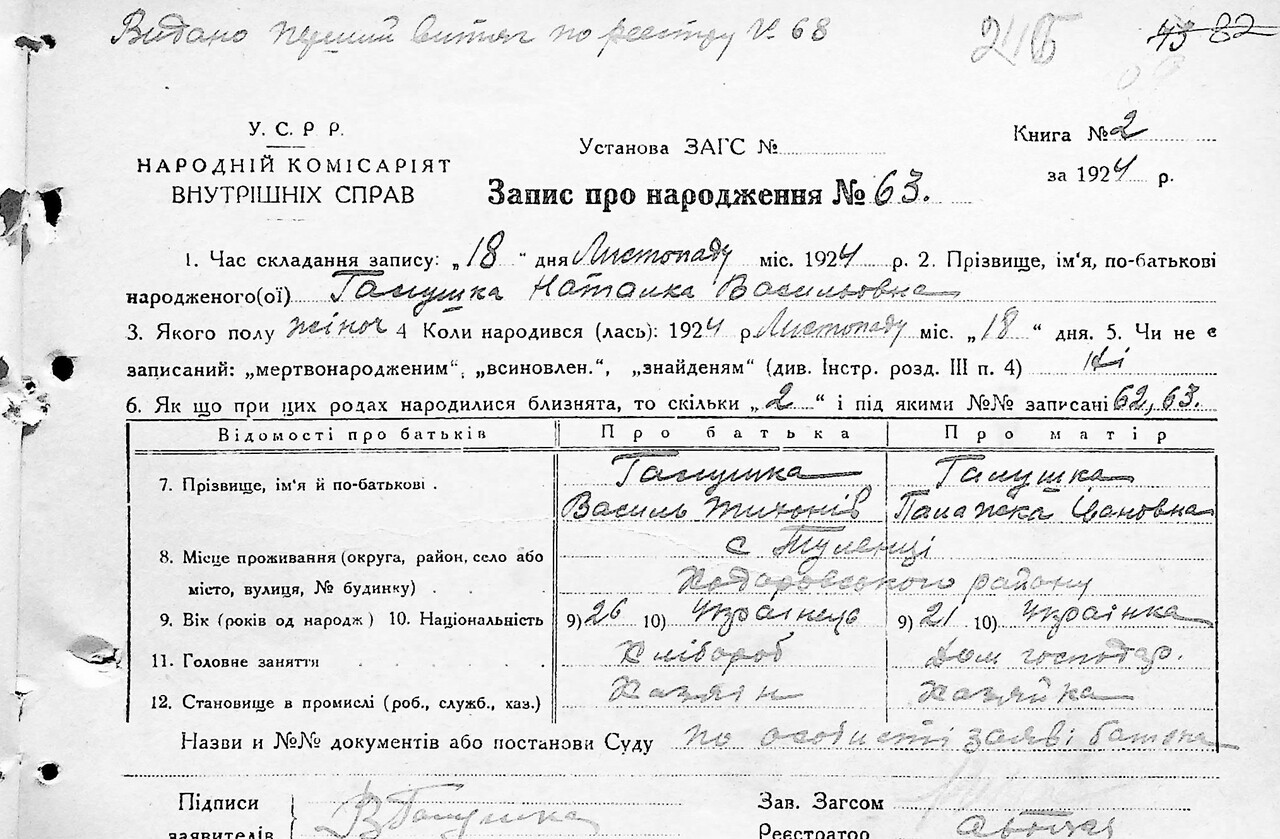 Видано перший витяг по реєстру № 68
246 43 82
У. С. Р Р.
НАРОДНІЙ КОМІСАРІЯТ
ВНУТРІШНІХ СПРАВ
Установа ЗАГС №
Книга № 2
за 1924 р.
Запис про народження № 63.
1. Час складання запису: „18“ дня Листопаду міс. 1924 р. 2. Прізвище, ім'я, по-батькові
народженого(ої) Галушка Наталка Васильовна
3. Якого полу жіноч 4 Коли народився (лась): 1924 р. Листопаду міс. „18“ дня. 5. Чи не є
записаний: „мертвонародженим“, „всиновлен.“, „знайденям“ (див. Інстр. розд. III п. 4) Ні
6. Як що при цих родах народилися близнята, то скільки „2“ і під якими №№ записані 62, 63.
Відомості про батьків Про батька Про матір
7. Прізвище, ім'я й по-батькові . Галушка Галушка
Василь Тихонів Палажка Івановна
8. Місце проживання (округа, район, село або с Туленці
місто, вулиця, № будинку) . . Ходоровського району
9. Вік (років од народж) 10. Національність 9) 26 10) Українець 9) 21 10) Українка
11. Головне заняття . . . . . Хлібороб Дом господар.
12. Становище в промислі (роб., служб., хаз.) Хазяін Хазяйка
Назви и №№ документів або постанови Суду по особисті заяві батька
Підписи
заявителів
В Галушка
Зав. Загсом
Реєстратор